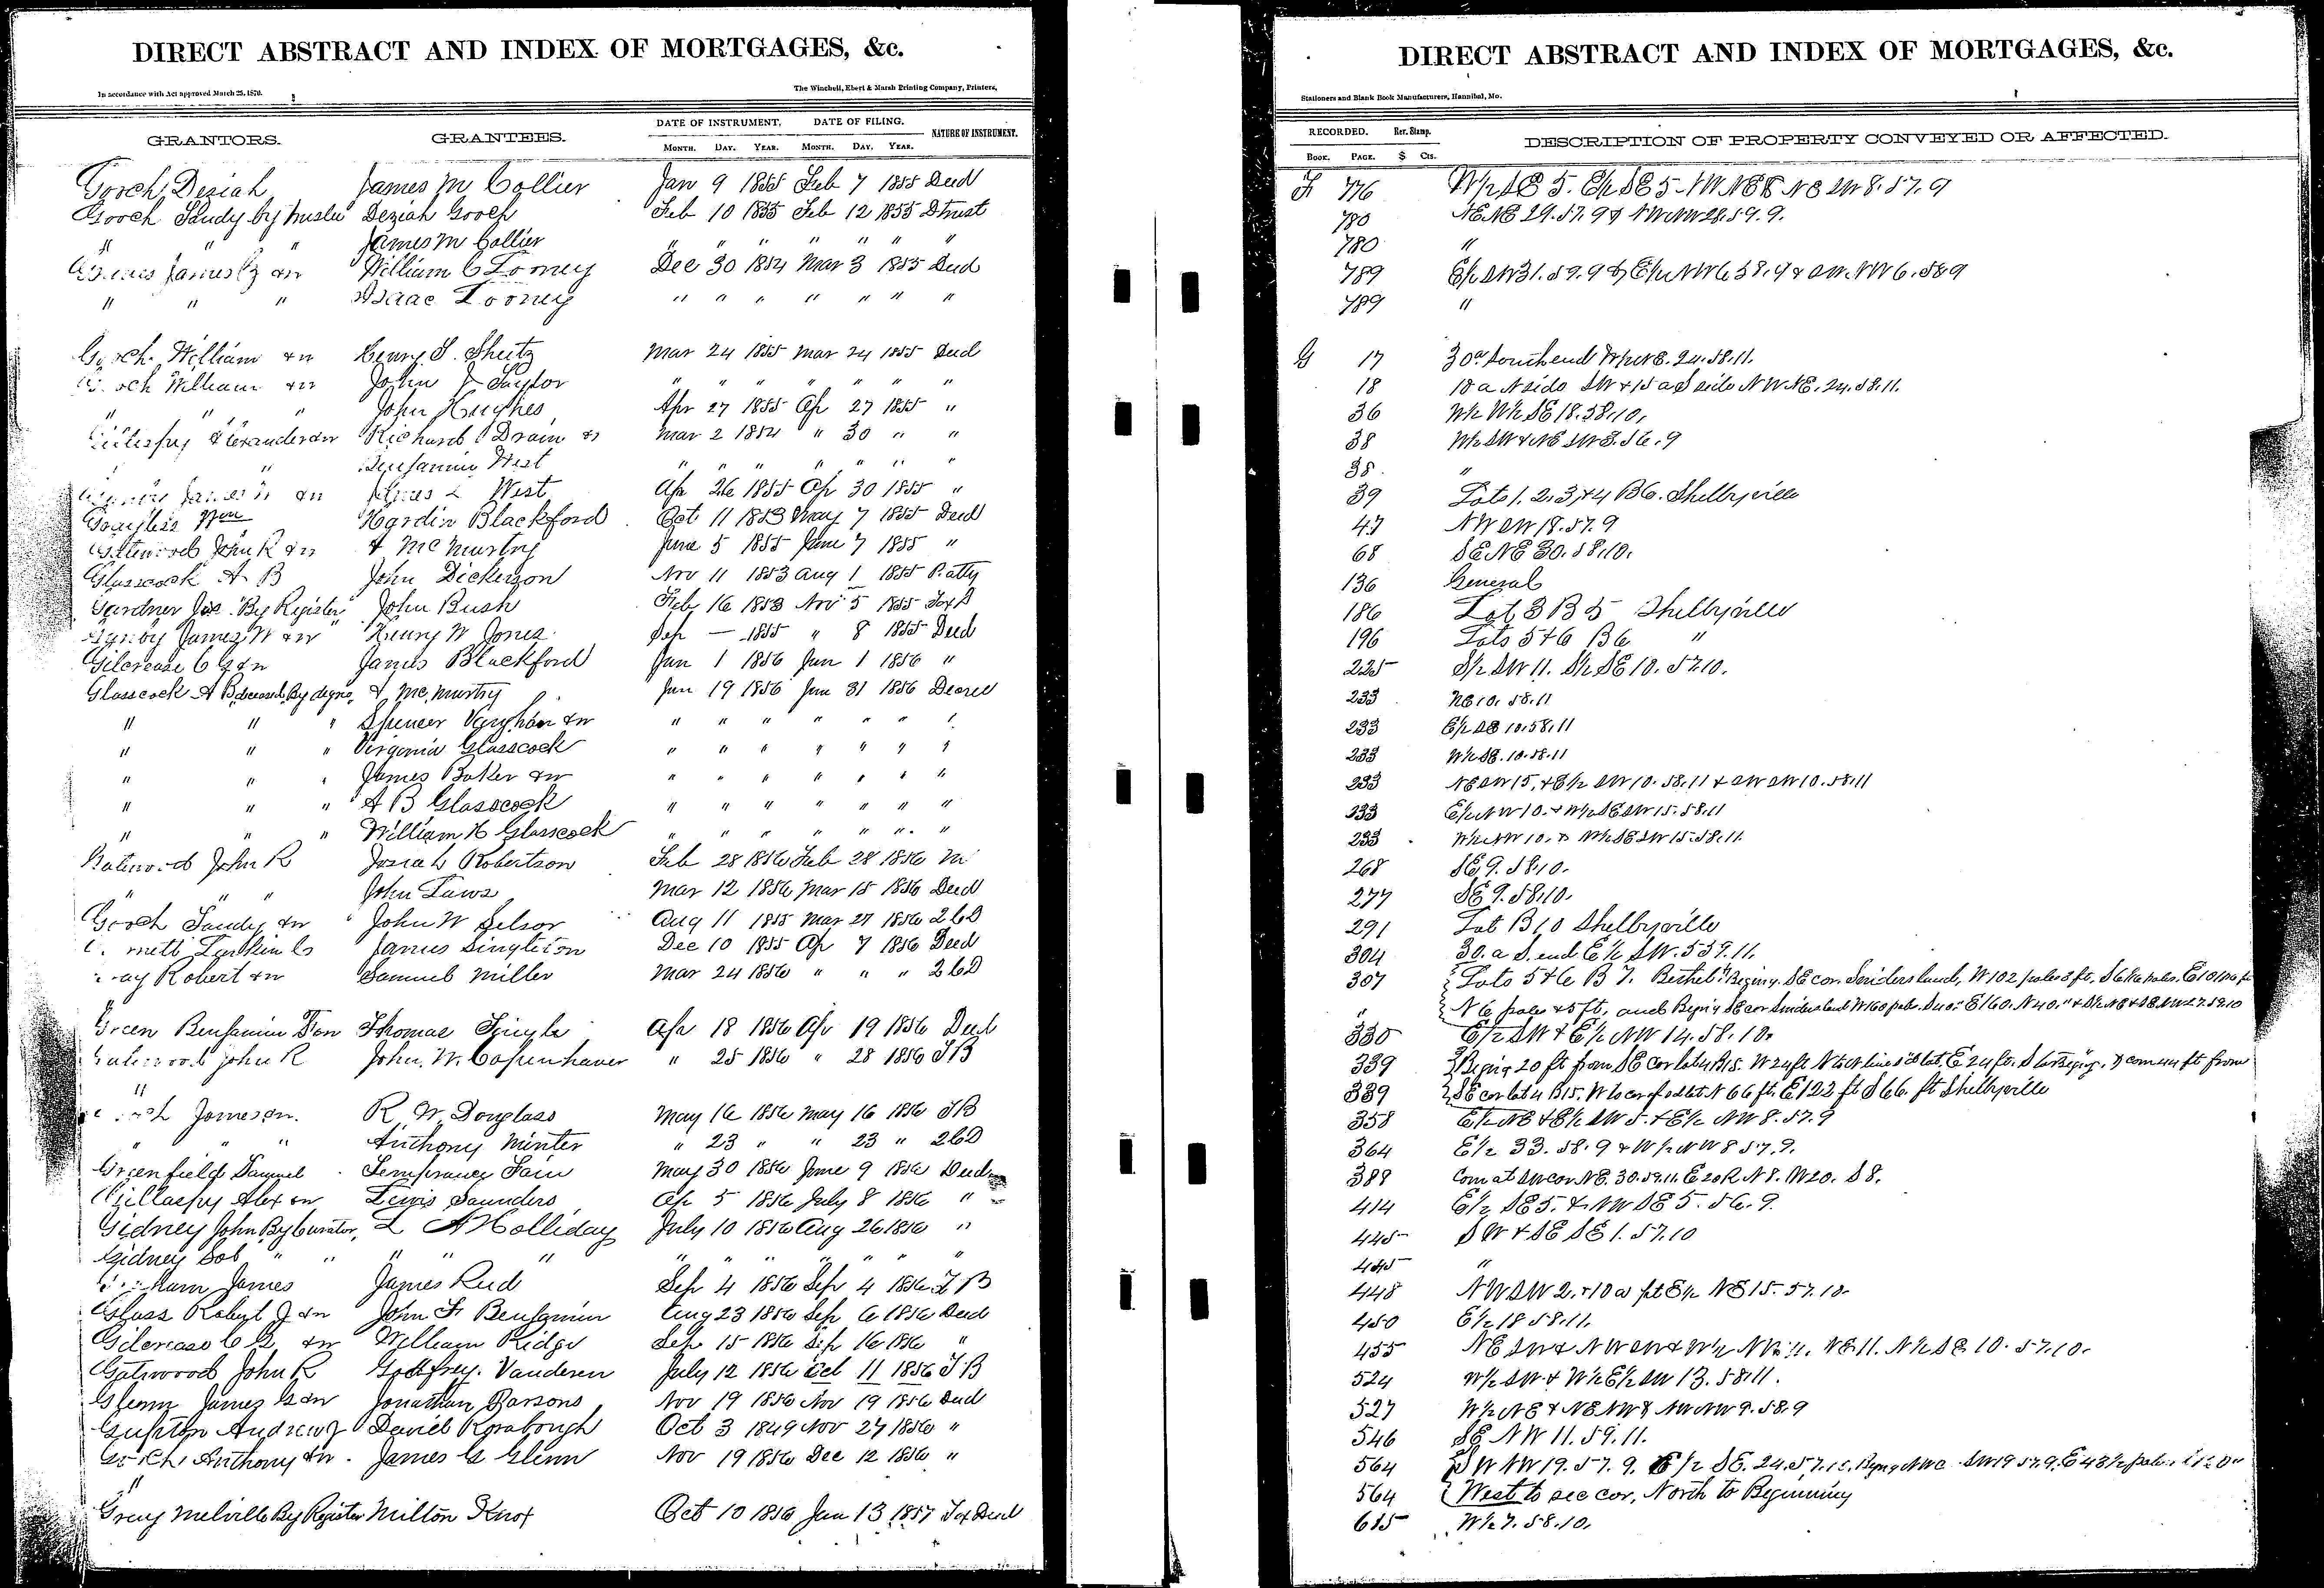 DIRECT ABSTRACT AND INDEX OF MORTGAGES, &c.
In accordance with Act approved March 25, 1870.
The Winchell, Ebert & Marsh Printing Company, Printers,
GRANTORS. GRANTEES. DATE OF INSTRUMENT. DATE OF FILING. NATURE OF INSTRUMENT.
MONTH. DAY. YEAR. MONTH. DAY. YEAR.
Gooch Deziah James M Collier Jan 9 1855 Feb 7 1855 Deed
Gooch Sandy by trustee Deziah Gooch Feb 10 1855 Feb 12 1855 D trust
" " " James M Collier " " " " " " "
James &w William C Looney Dec 30 1854 Mar 3 1855 Deed
" " " Isaac Looney " " " " " " "
Gooch William &w Henry S. Sheetz Mar 24 1855 Mar 24 1855 Deed
Gooch William &w John J Taylor " " " " " " "
" " " John Hughes Apr 27 1855 Ap 27 1855 "
Gillespy Alexander &w Richard Drain & Mar 2 1854 " 30 " "
" " Benjamin West " " " " " " "
James &w West Ap 26 1855 Ap 30 1855 "
Wm Hardin Blackford Oct 11 1853 May 7 1855 Deed
Gatewood John R &w & McMurtry June 5 1855 June 7 1855 "
Glasscock A B John Dickerson Nov 11 1853 Aug 1 1855 P. atty
Gardner By Register John Bush Feb 16 1853 Nov 5 1855 Tax D
James W &w Henry W Jones Sep — 1855 " 8 1855 Deed
Gilcrease C G &w James Blackford Jan 1 1856 Jan 1 1856 "
Glasscock A B deceased By degree, & McMurtry Jan 19 1856 Jan 31 1856 Decree
" " " Spencer Vaughan &w " " " " " " "
" " " Virginia Glasscock " " " " " " "
" " " James Baker &w " " " " " " "
" " " A B Glasscock " " " " " " "
" " " William H Glasscock " " " " " " "
Gatewood John R Josiah Robertson Feb 28 1856 Feb 28 1856 M
" " " John Laws Mar 12 1856 Mar 15 1856 Deed
Gooch Sandy &w John W Selsor Aug 11 1855 Mar 27 1856 2 C D
James Singleton Dec 10 1855 Ap 7 1856 Deed
Robert &w Samuel Miller Mar 24 1856 " " " 2 C D
Green Benjamin F &w Thomas Apr 18 1856 Apr 19 1856 Deed
Gatewood John R John. W. Copenhaver " 25 1856 " 28 1856 T B
"
Jameson. R. W. Douglass May 16 1856 May 16 1856 T B
" " " Anthony Minter " 23 " " 23 " 2 C D
Greenfield Samuel Temprancy Fain May 30 1856 June 9 1856 Deed
Gillaspy Alex &w Lewis Saunders Ap 5 1856 July 8 1856 "
Gidney John By Curator, L A Holliday July 10 1856 Aug 26 1856 "
Gidney Sol " " " " " " " " " " " "
James James Reid Sep 4 1856 Sep 4 1856 T B
Glass Robert J &w John F Benjamin Aug 23 1856 Sep 6 1856 Deed
Gilcrease C G &w William Ridge Sep 15 1856 Sep 16 1856 "
Gatewood John R Godfrey. Vanderen July 12 1856 Oct 11 1856 T B
Glenn James G &w Jonathan Parsons Nov 19 1856 Nov 19 1856 Deed
Gupton Andrew J David Rorabough Oct 3 1849 Nov 27 1856 "
Gooch Anthony &w James G Glenn Nov 19 1856 Dec 12 1856 "
"
Gray Melville By Register Milton Knox Oct 10 1856 Jan 13 1857 Tax Deed
DIRECT ABSTRACT AND INDEX OF MORTGAGES, &c.
Stationers and Blank Book Manufacturers, Hannibal, Mo.
RECORDED. Rev. Stamp. DESCRIPTION OF PROPERTY CONVEYED OR AFFECTED.
BOOK. PAGE. $ Cts.
F 776 W½ SE 5. E½ SE 5 - NW NE 8 NE SW 8. 57. 9
780 NE NE 29. 57. 9 & NW NW 28. 59. 9.
780 "
789 E½ SW 31. 59. 9 & E½ NW 6 58. 9 & SW. NW 6. 58 9
789 "
G 17 30a South end W½ NE. 24. 58. 11.
18 10 a N side SW & 15 a S side NW NE. 24. 58. 11.
36 W½ W½ SE 18. 58. 10.
38 W½ SW & NE SW 3. 56. 9
38. "
39 Lots 1. 2. 3, & 4 B 6. Shelbyville
47 NW SW 19. 57. 9
68 SE NE 30. 58. 10.
136 General
186 Lot 3 B 5 Shelbyville
196 Lots 5 & 6 B 6 "
225 S½ SW 11. S½ SE 10. 57. 10.
233 NE 10. 58. 11
233 E½ SE 10. 58. 11
233 W½ SE. 10. 58. 11
233 NE SW 15, & E½ SW 10. 58. 11 & SW SW 10. 58. 11
233 E½ NW 10. & W½ SE SW 15. 58. 11
233 W½ NW 10. & W½ SE SW 15. 58. 11.
268 SE 9. 58. 10.
277 SE 9. 58. 10.
291 Lot B 10 Shelbyville
304 30. a S. end E½ SW. 5 59. 11.
307 Lots 5 & 6 B 7. Bethel. Begin'g. SE cor. Sniders land, W 102 poles 3 ft.
" N 6 poles & 5 ft, and Begin'g SE cor Sniders land W 160 pole. E 160. N 40. "
330 E½ SW & E½ NW 14. 58. 10.
339 Begin'g 20 ft from SE cor lot 4 B 15. W 24 ft N to N line sd lot, E 24 ft. S to Begin'g. & com 44 ft from
339 SE cor lot 4 B 15. W to cor of sd lot N 66 ft. E 122 ft S 66. ft Shelbyville
358 E½ NE & E½ SW 5. & E½ NW 8. 57. 9
364 E½ 33. 58. 9 & W½ NW 8 57. 9.
389 Com at SW cor NE. 30. 59. 11. E 20 R N 8. W 20. S 8.
414 E½ SE 5. & NW SE 5. 56. 9.
445 SW & SE SE 1. 57. 10
445 "
448 NW SW 2. & 10 a pt E½ NE 15. 57. 10.
450 E½ 18 58. 11.
455 NE SW & NW SW & W½ NW 11. NE 11. N½ SE 10. 57. 10.
524 W½ SW & W½ E½ SW 13. 58. 11.
527 W½ NE & NE NW & NW NW 9. 58. 9
546 SE NW 11. 59. 11.
564 SW NW 19. 57. 9. E½ SE. 24. 57. 10.
564 West to sec cor, North to Beginning
615 W½ 7. 58. 10.